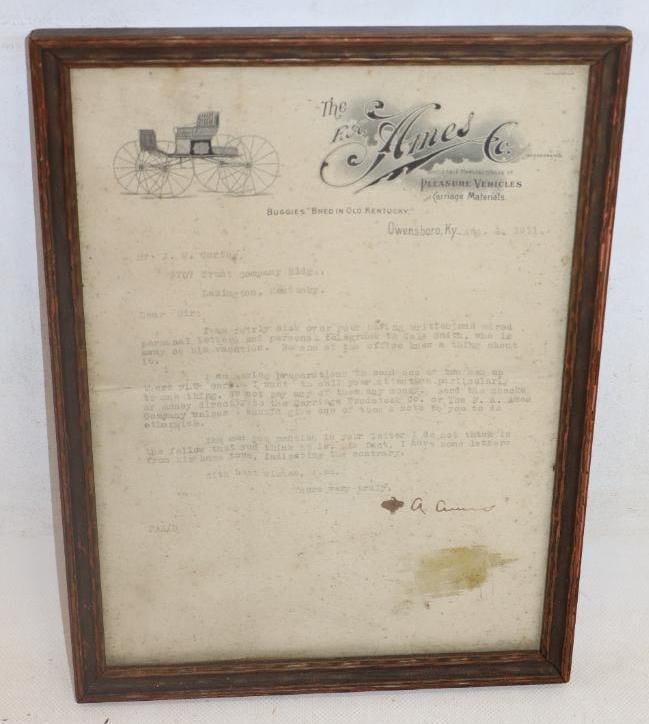 The
F.A. Ames Co.
Incorporated
Manufacturers of
Pleasure Vehicles
Carriage Materials.
Buggies "Bred in Old Kentucky."
Owensboro, Ky. 1911.
Mr. J. Carter,
Trust Company Bldg.,
Lexington, Kentucky.
Dear Sir:
I am fairly sick over your having written and wired
personal letters and personal telegrams to Smith, who is
away on his vacation. No one at the office knew a thing about
it.
I am making preparations to send one or two men up
there I want to call your attention particularly
to one thing. Do not pay any of them any money. Send the checks
or money direct to the Carriage Woodstock Co. or The F. A. Ames
Company unless I should give one of them a note to you to do
otherwise.
The man you mention in your letter I do not think is
the fellow that you think he is. In fact, I have some letters
from his home town, indicating the contrary.
With best wishes, I am,
Yours very truly,
A Ames
FAA/D